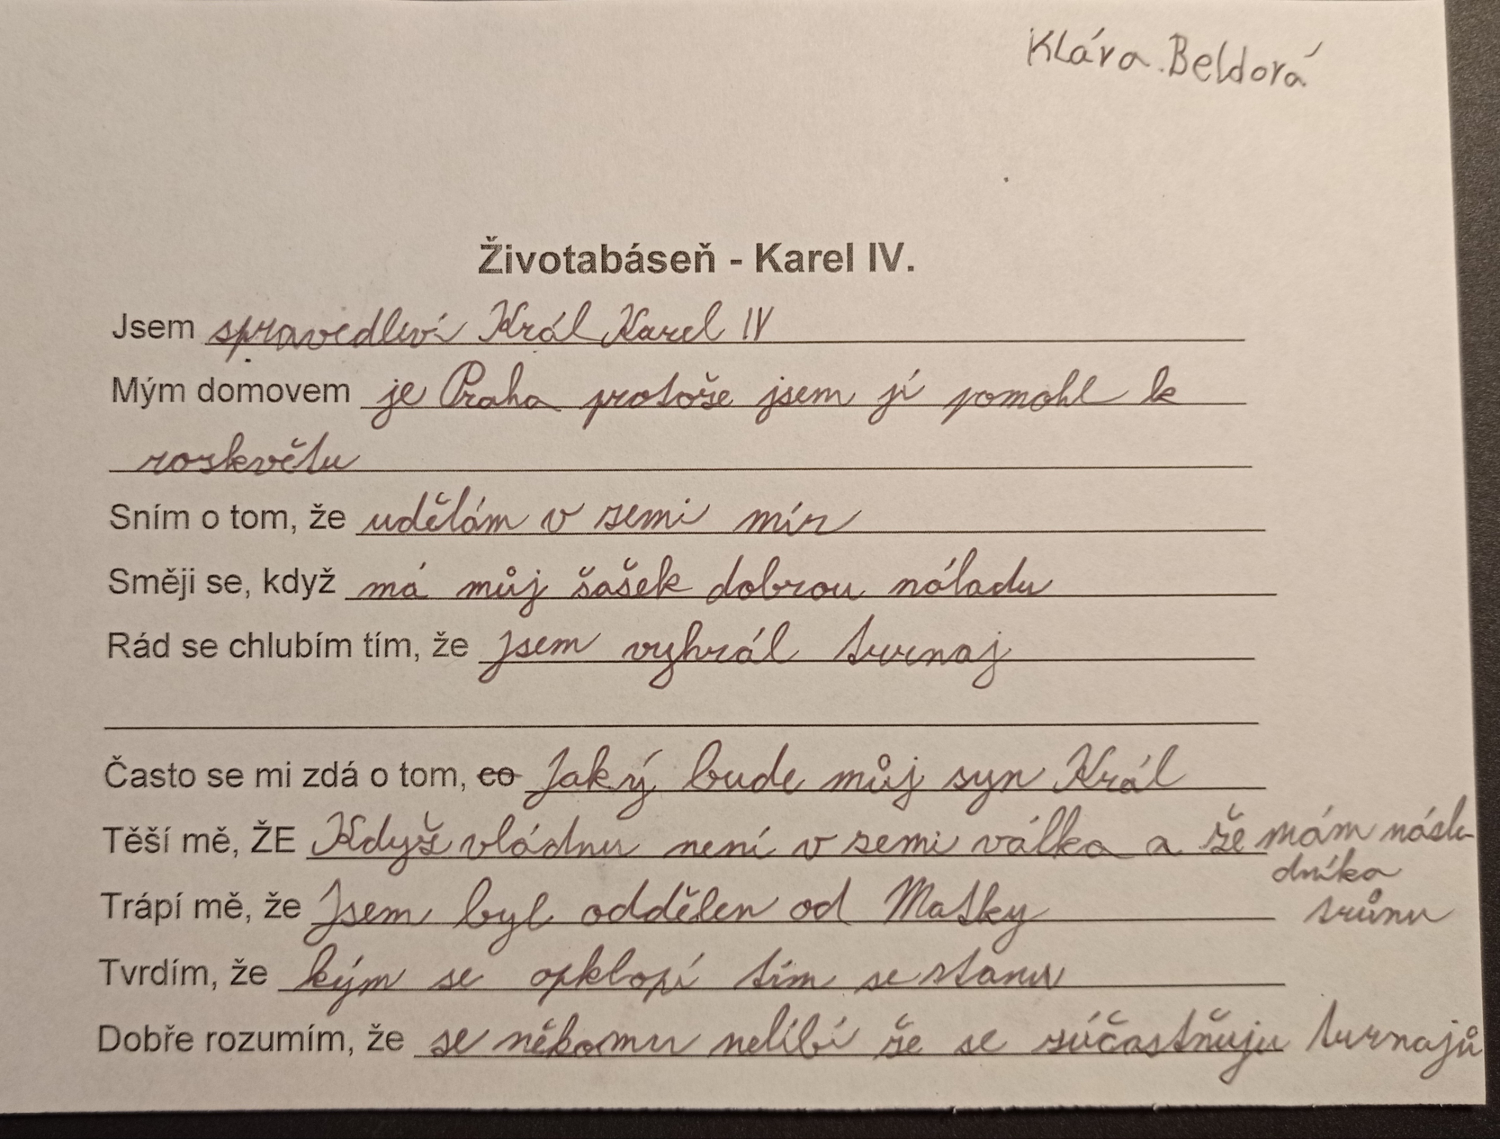 Klára Beldorá
Životabáseň - Karel IV.
Jsem spravedliví Král Karel IV
Mým domovem je Praha protože jsem jí pomohl k
rozkvětu
Sním o tom, že udělám v zemi mír
Směji se, když má můj šašek dobrou náladu
Rád se chlubím tím, že jsem vyhrál turnaj
Často se mi zdá o tom, co Jaký bude můj syn Král
Těší mě, ŽE Když vládnu není v zemi válka a že mám násle-
dníka
trůnu
Trápí mě, že Jsem byl oddělen od Matky
Tvrdím, že kým se opklopí tím se stanu
Dobře rozumím, že se někomu nelíbí že se zúčastňuju turnajů